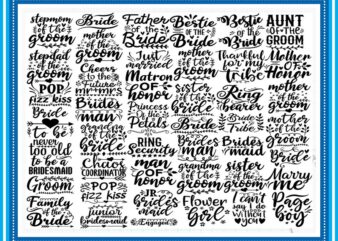 stepmom
of the
groom
stepdad
of the
groom
POP
fizz kiss
Bride
To be
never
too old
to be a
BRIDESMAID
Groom
Family
of the
Bride
Bride
mother
of the
groom
Cheers
to the
Future
mr & mrs
Brides
man
grandma
of the
groom
Chaos
COORDINATOR
POP
fizz
kiss
junior
bridesmaid
Father
of the
Bride
Just
married
Matron
OF
HONOR
Princess
of the
Petals
RING
SECURITY
man
OF
HONOR
JR
BRIDES
man
Engaged
Bestie
OF THE
Bride
mother
of the
groom
sister
of the
Bride
Brides
man
grandma
of the
groom
Flower
girl
Bestie
of the
Bride
Thankful
for my
tribe
Ring
bearer
Bride
Tribe
Brides
maid
sister
of the
groom
I can't
say I do
without
you
AUNT
OF THE
GROOM
Mother
OF
Honor
mother
of the
groom
mother
of the
groom
Marry
me
Page
boy